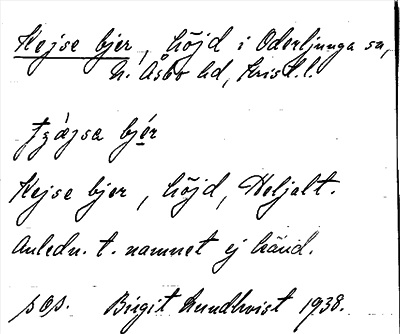 Kejse bjer, höjd i Oderljunga sn,
N. Åsbo hd, Krist. l.
bjér
Kejse bjer, höjd, Heljalt.
Anledn. t. namnet ej känd.
Birgit Lundkvist 1938.